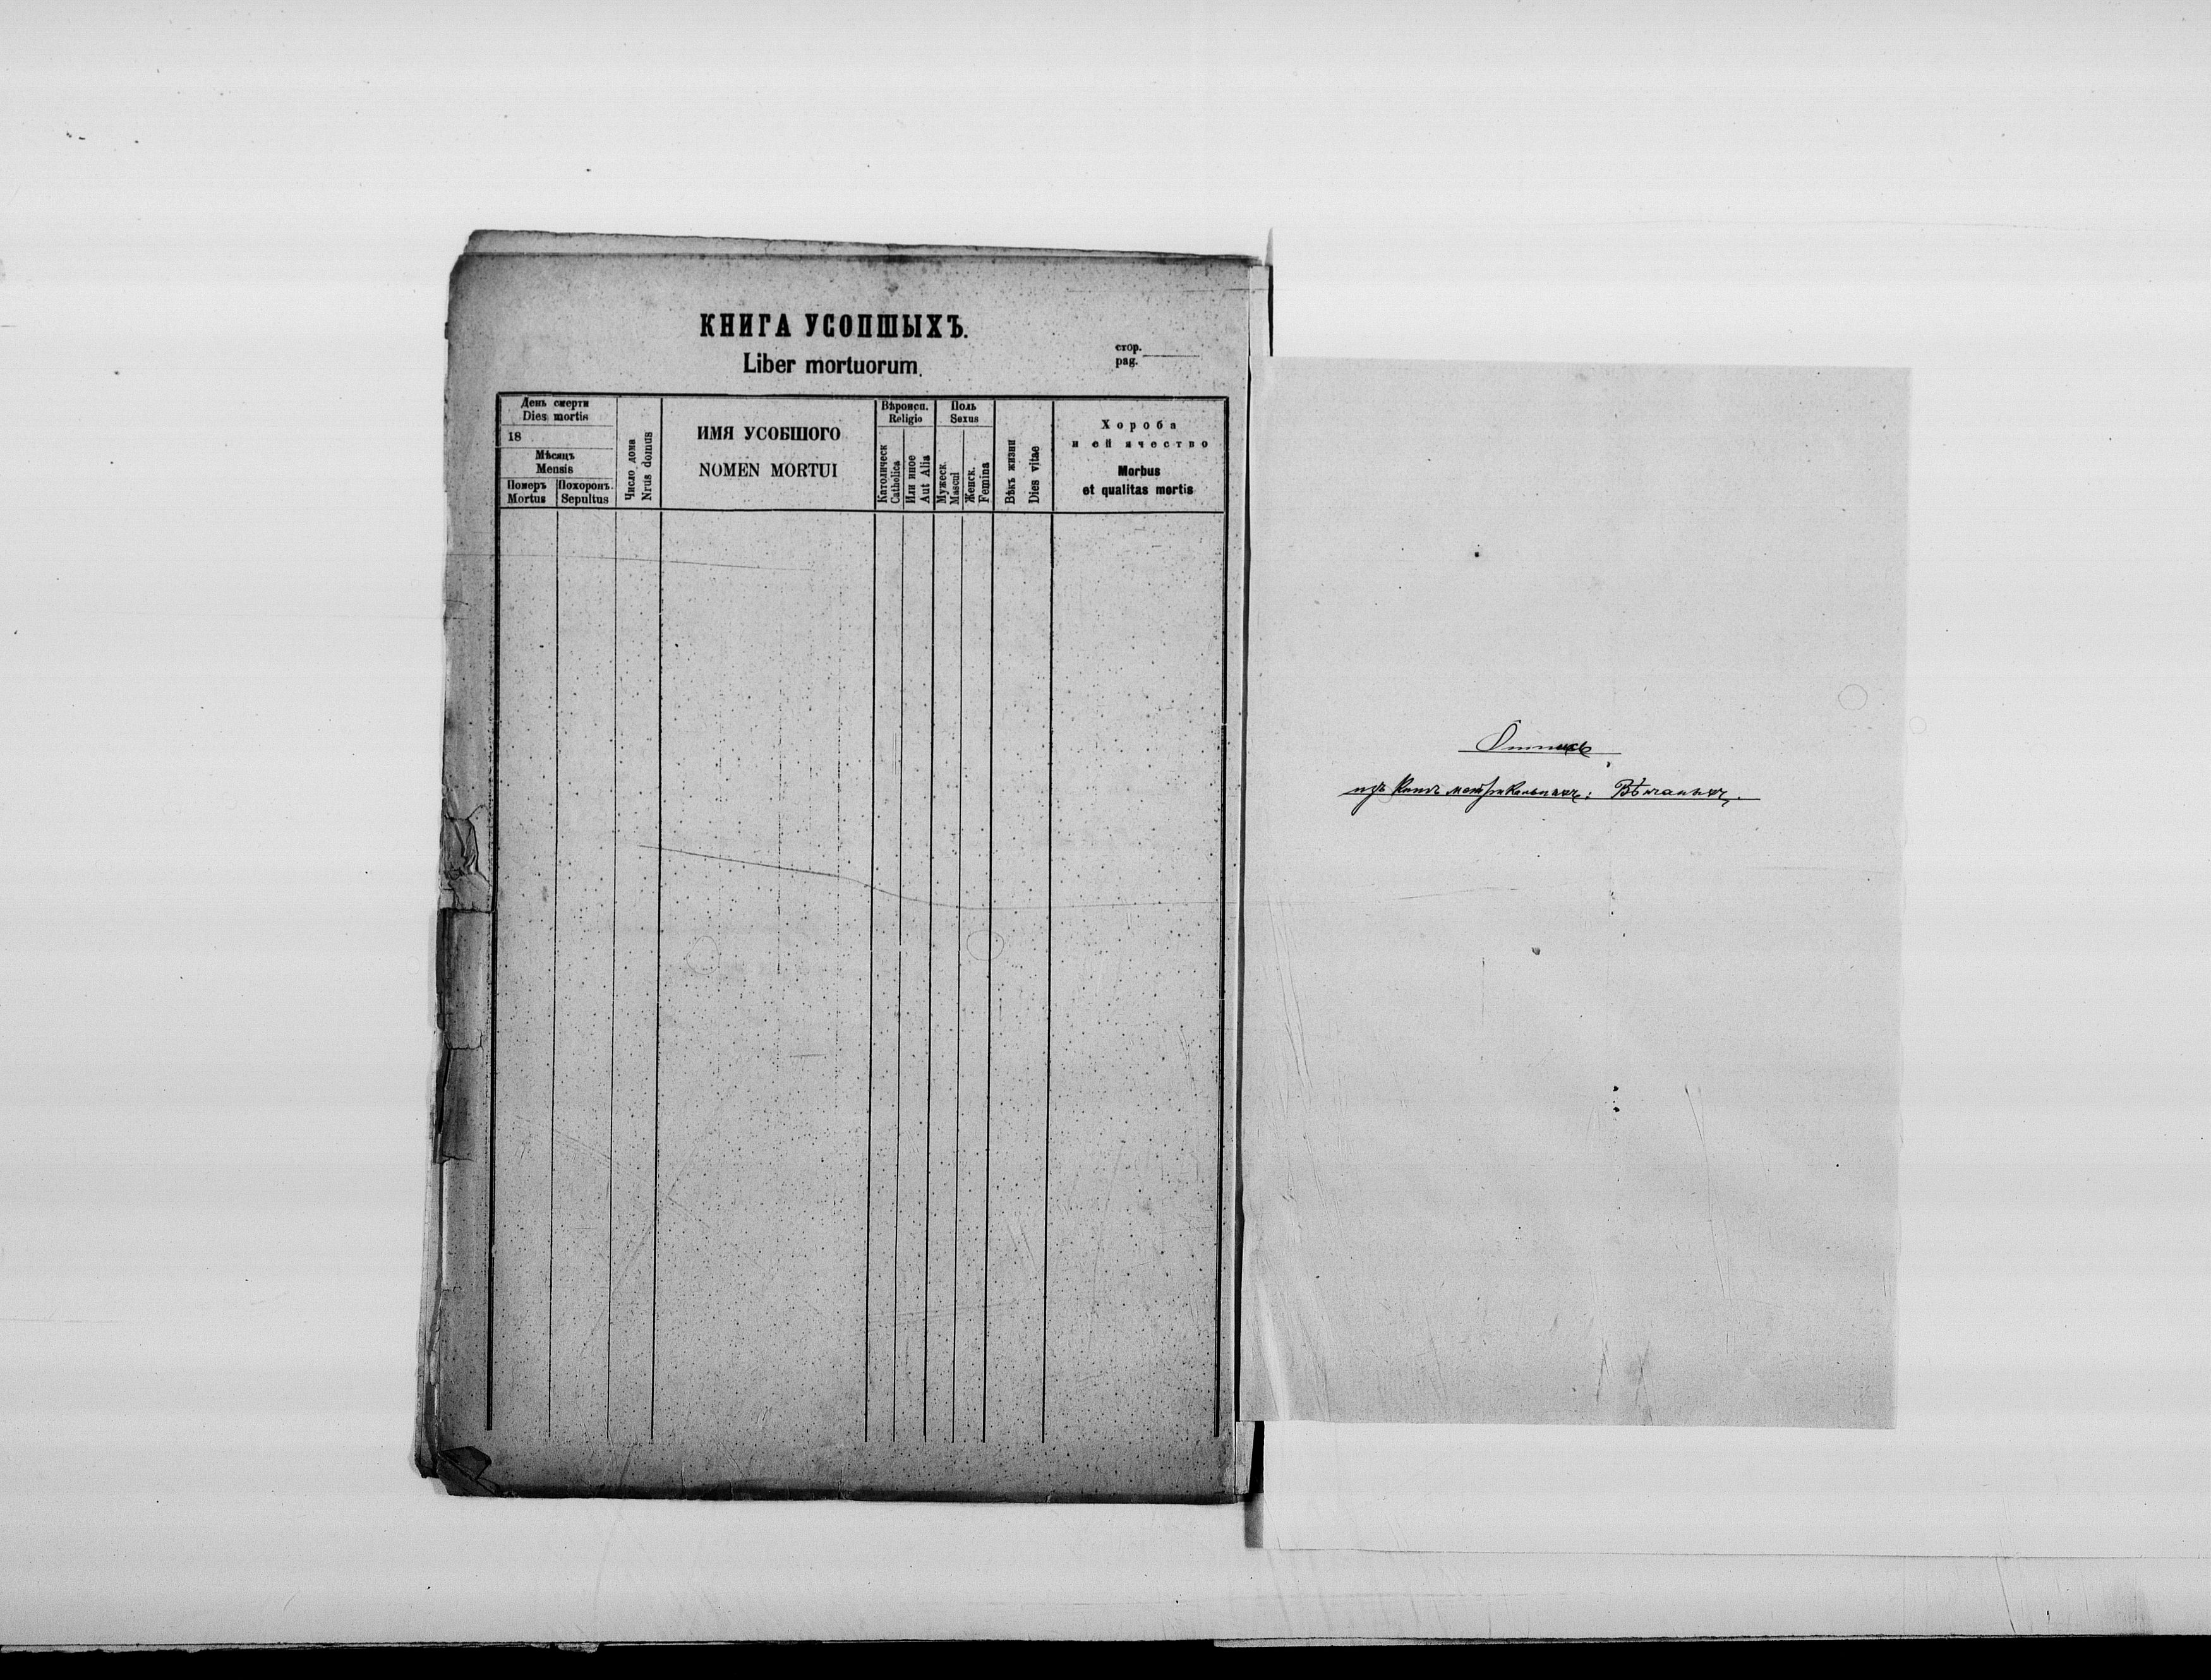 КНИГА УСОПШЫХЪ.
Liber mortuorum.
стор.
pag.
День смерти
Dies mortis
18
Мѣсяцъ
Mensis
Померъ
Mortus
Похоронъ.
Sepultus
Число дома
Nrus domus
ИМЯ УСОБШОГО
NOMEN MORTUI
Вѣроисп.
Religio
Католическ
Catholica
Или иное
Aut Alia
Поль
Sexus
Мужеск.
Mascul
Женск.
Femina
Вѣкъ жизни
Dies vitae
Хороба
и ей ячество
Morbus
et qualitas mortis
изъ Книгъ метрикальныхъ: Вѣнчаныхъ.